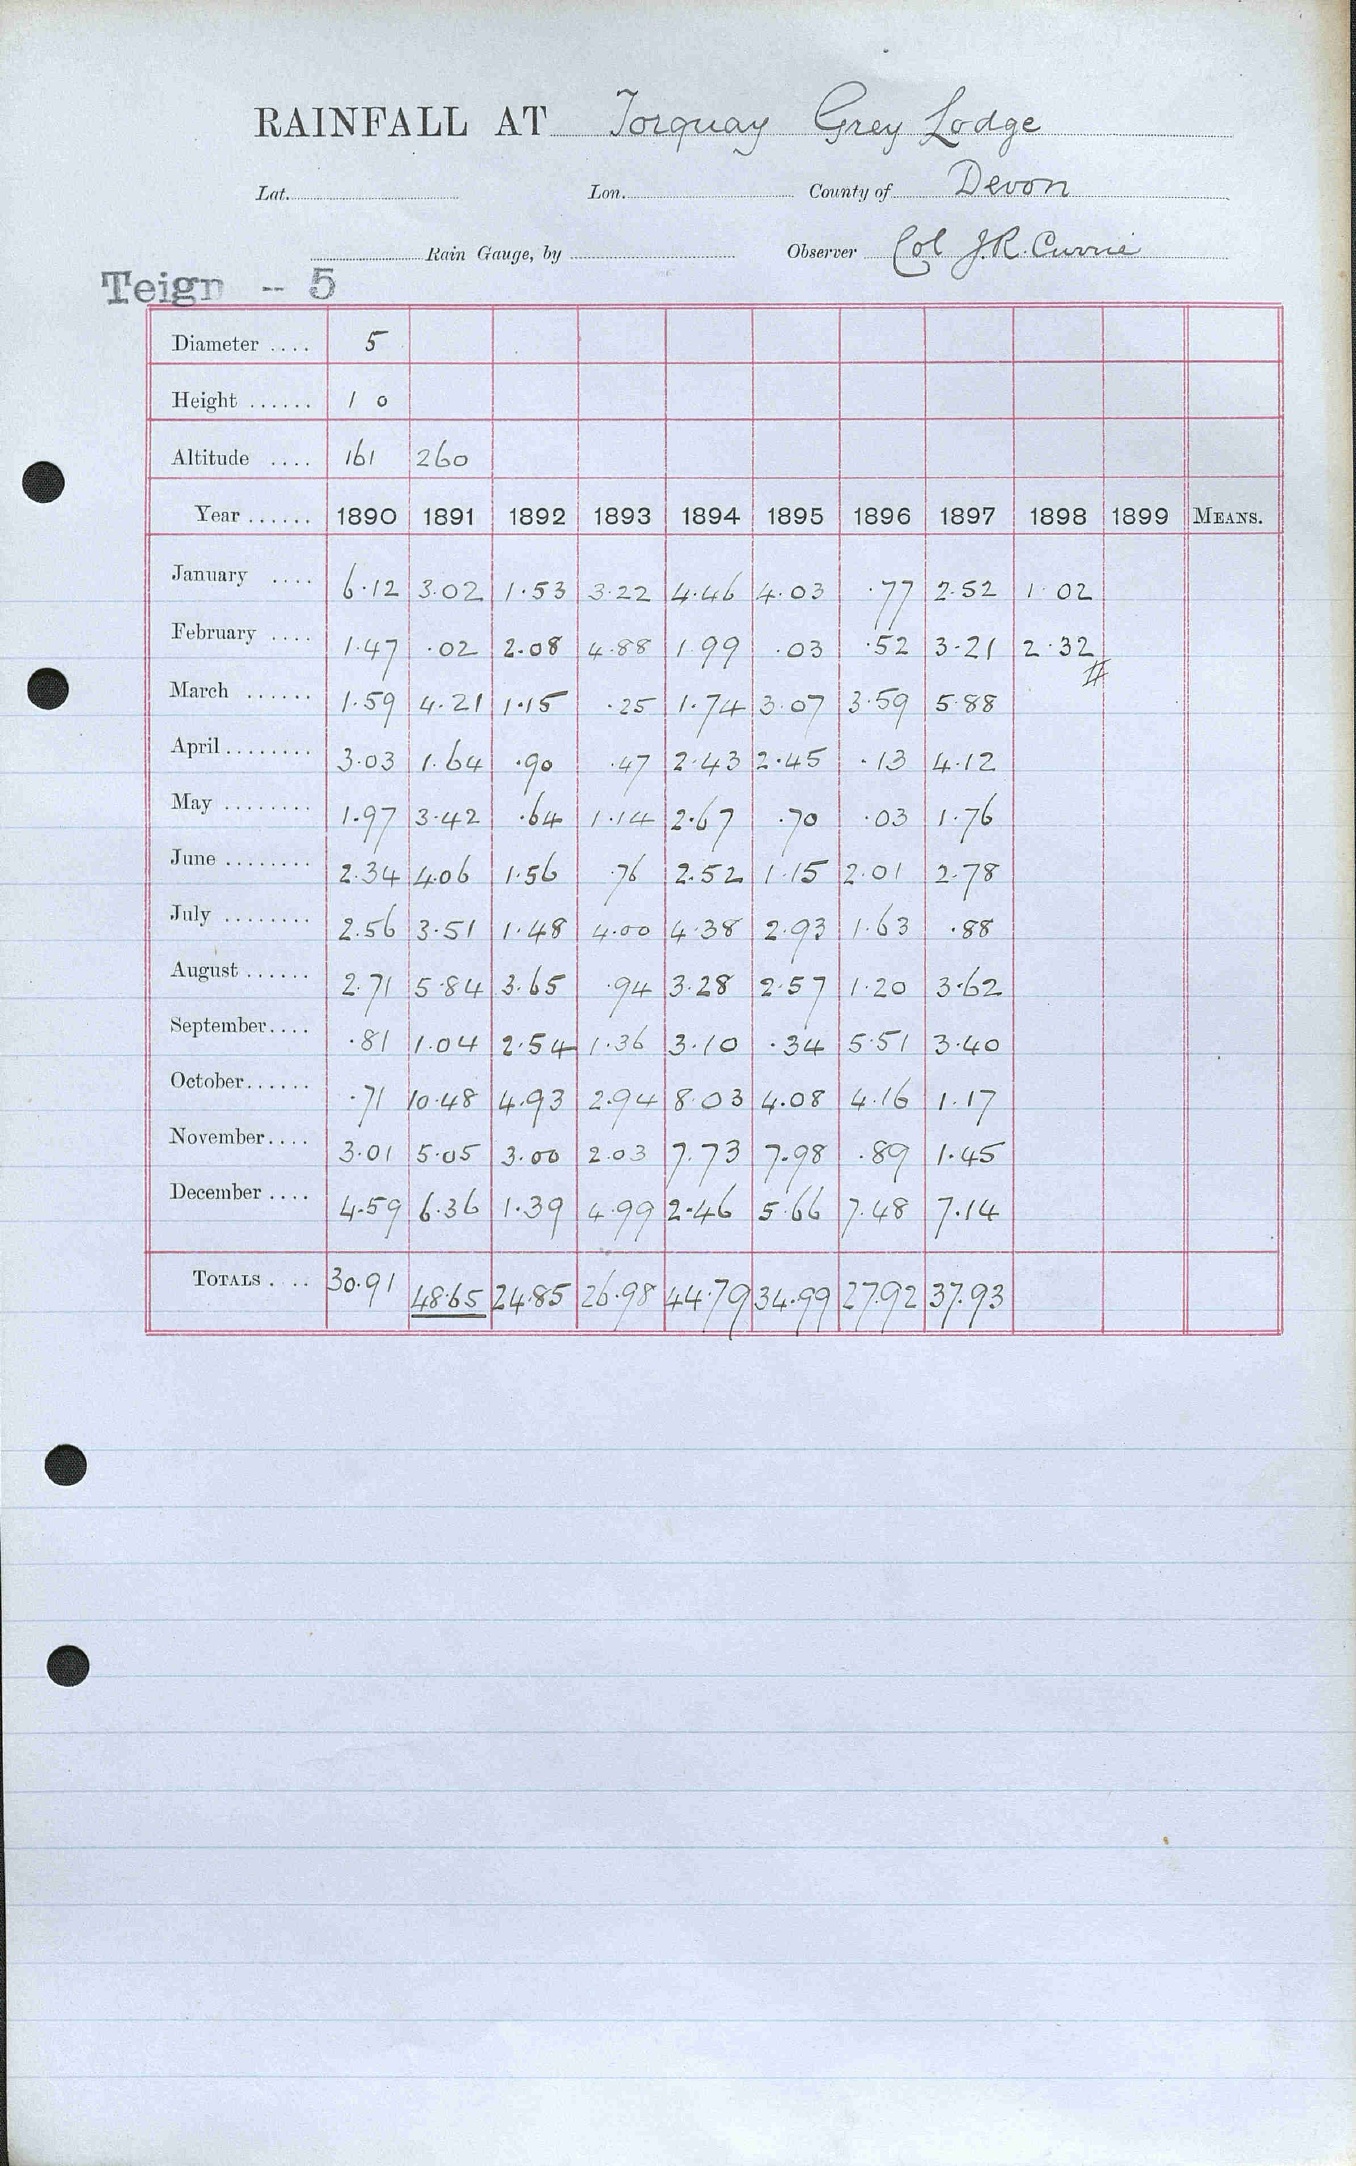 RAINFALL AT Torquay Grey Lodge
Lat. Lon. County of Devon
Rain Gauge, by Observer Col J.R. Currie
Teign -- 5
Diameter .... 5
Height ...... 1 0
Altitude .... 161 260
Year ...... 1890 1891 1892 1893 1894 1895 1896 1897 1898 1899 MEANS.
January .... 6.12 3.02 1.53 3.22 4.46 4.03 .77 2.52 1.02
February .... 1.47 .02 2.08 4.88 1.99 .03 .52 3.21 2.32
#
March ...... 1.59 4.21 1.15 .25 1.74 3.07 3.59 5.88
April ........ 3.03 1.64 .90 .47 2.43 2.45 .13 4.12
May ........ 1.97 3.42 .64 1.14 2.67 .70 .03 1.76
June ........ 2.34 4.06 1.56 .76 2.52 1.15 2.01 2.78
July ........ 2.56 3.51 1.48 4.00 4.38 2.93 1.63 .88
August ...... 2.71 5.84 3.65 .94 3.28 2.57 1.20 3.62
September.... .81 1.04 2.54 1.36 3.10 .34 5.51 3.40
October...... .71 10.48 4.93 2.94 8.03 4.08 4.16 1.17
November.... 3.01 5.05 3.00 2.03 7.73 7.98 .89 1.45
December .... 4.59 6.36 1.39 4.99 2.46 5.66 7.48 7.14
TOTALS .... 30.91 48.65 24.85 26.98 44.79 34.99 27.92 37.93